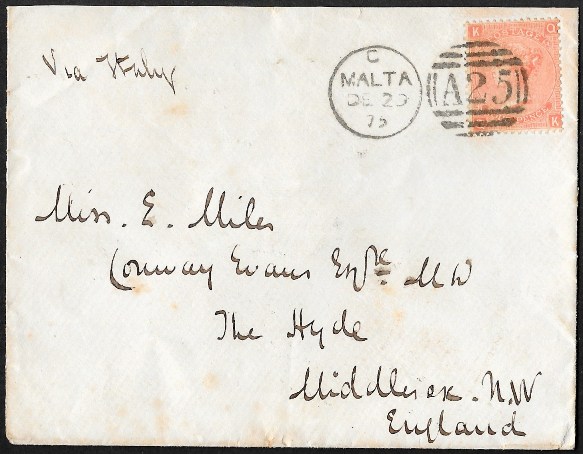 Via Italy
C
MALTA
DE 29
75
A25
K O
POSTAGE
PENCE
K
Miss. E. Miles
Conway Evans Esqre MD
The Hyde
Middlesex. N.W
England